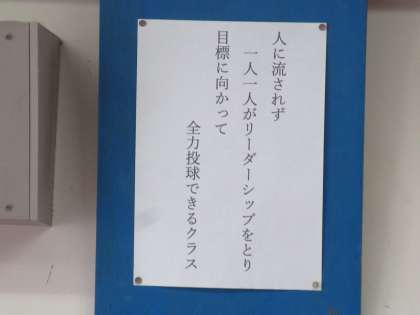 人に流されず
一人一人がリーダーシップをとり
目標に向かって
全力投球できるクラス